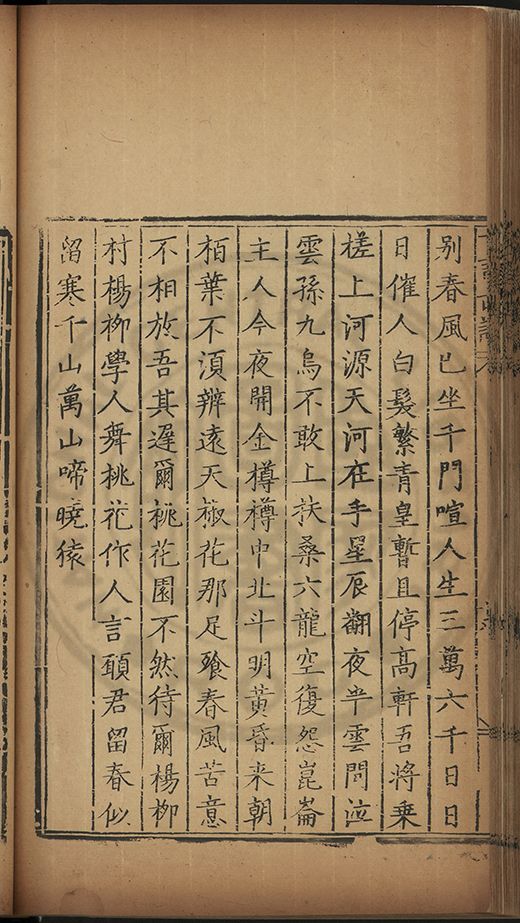 别春風已坐千門喧人生三萬六千日日
日催人白髮繁青皇暫且停高軒吾將乗
槎上河源天河在手星辰翻夜半雲間泣
雲孫九烏不敢上扶桑六龍空復怨崑崙
主人今夜開金樽樽中北斗明黄昏来朝
栢葉不須辨遠天椒花那足飱春風苦意
不相於吾其遲爾桃花園不然待爾楊柳
村楊柳學人舞桃花作人言願君留春似
留寒千山萬山啼曉猿